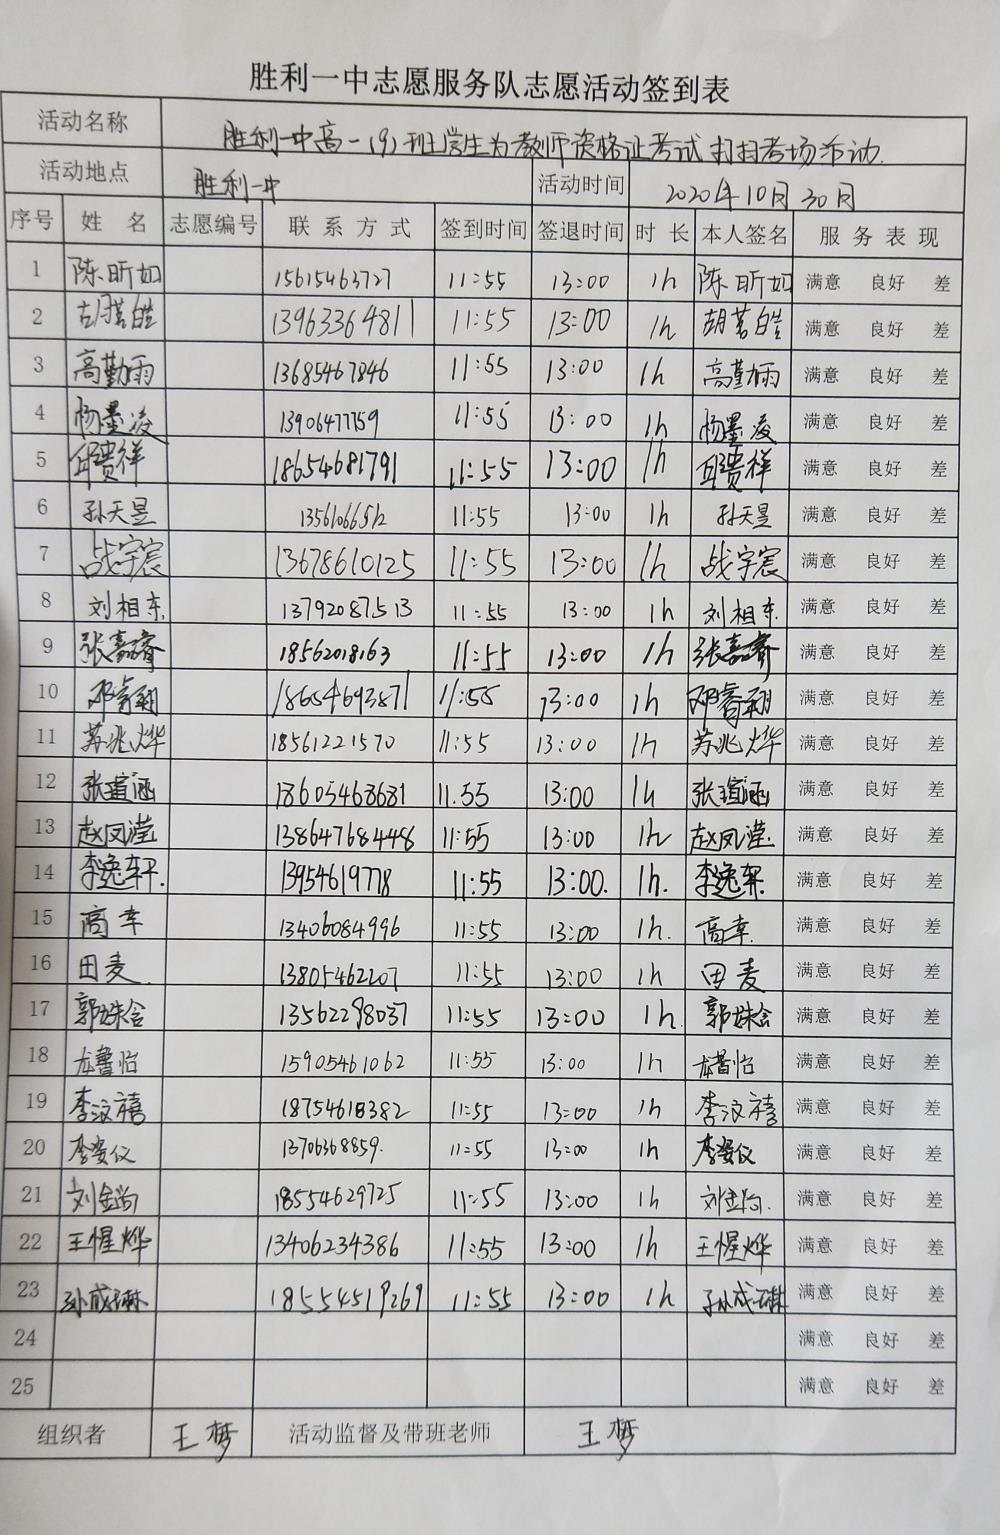 胜利一中志愿服务队志愿活动签到表
活动名称 胜利一中高一(9)班学生为教师资格证考试打扫考场活动.
活动地点 胜利一中 活动时间 2020年10月30日
序号 姓名 志愿编号 联系方式 签到时间 签退时间 时长 本人签名 服务表现
1 陈昕如 15615463727 11:55 13:00 1h 陈昕如 满意 良好 差
2 胡茗皓 13963364811 11:55 13:00 1h 胡茗皓 满意 良好 差
3 高勤雨 13685467846 11:55 13:00 1h 高勤雨 满意 良好 差
4 杨墨凌 13906477759 11:55 13:00 1h 杨墨凌 满意 良好 差
5 邱贵祥 18654681791 11:55 13:00 1h 邱贵祥 满意 良好 差
6 孙天昱 13561066512 11:55 13:00 1h 孙天昱 满意 良好 差
7 战宇宸 13678610125 11:55 13:00 1h 战宇宸 满意 良好 差
8 刘相东 13792087513 11:55 13:00 1h 刘相东 满意 良好 差
9 张嘉睿 18562018163 11:55 13:00 1h 张嘉睿 满意 良好 差
10 邓睿翔 18654693871 11:55 13:00 1h 邓睿翔 满意 良好 差
11 苏兆烨 18561221570 11:55 13:00 1h 苏兆烨 满意 良好 差
12 张瑄涵 18605468681 11.55 13:00 1h 张瑄涵 满意 良好 差
13 赵凤滢 138647684448 11:55 13:00 1h 赵凤滢 满意 良好 差
14 李逸轩. 13954619778 11:55 13:00. 1h. 李逸轩 满意 良好 差
15 高幸 13406084996 11:55 13:00 1h. 高幸. 满意 良好 差
16 田麦. 13805462207 11:55 13:00 1h 田麦 满意 良好 差
17 郭姝含 13562298037 11:55 13:00 1h. 郭姝含 满意 良好 差
18 15905461062 11:55 13:00 1h 满意 良好 差
19 李汶禧 18754618382 11:55 13:00 1h 李汶禧 满意 良好 差
20 李姿仪 13706368859. 11:55 13:00 1h 李姿仪 满意 良好 差
21 18554629725 11:55 13:00 1h 满意 良好 差
22 王惺烨 13406234386 11:55 13:00 1h 王惺烨 满意 良好 差
23 18554519269 11:55 13:00 1h 满意 良好 差
24 满意 良好 差
25 满意 良好 差
组织者 王梦 活动监督及带班老师 王梦